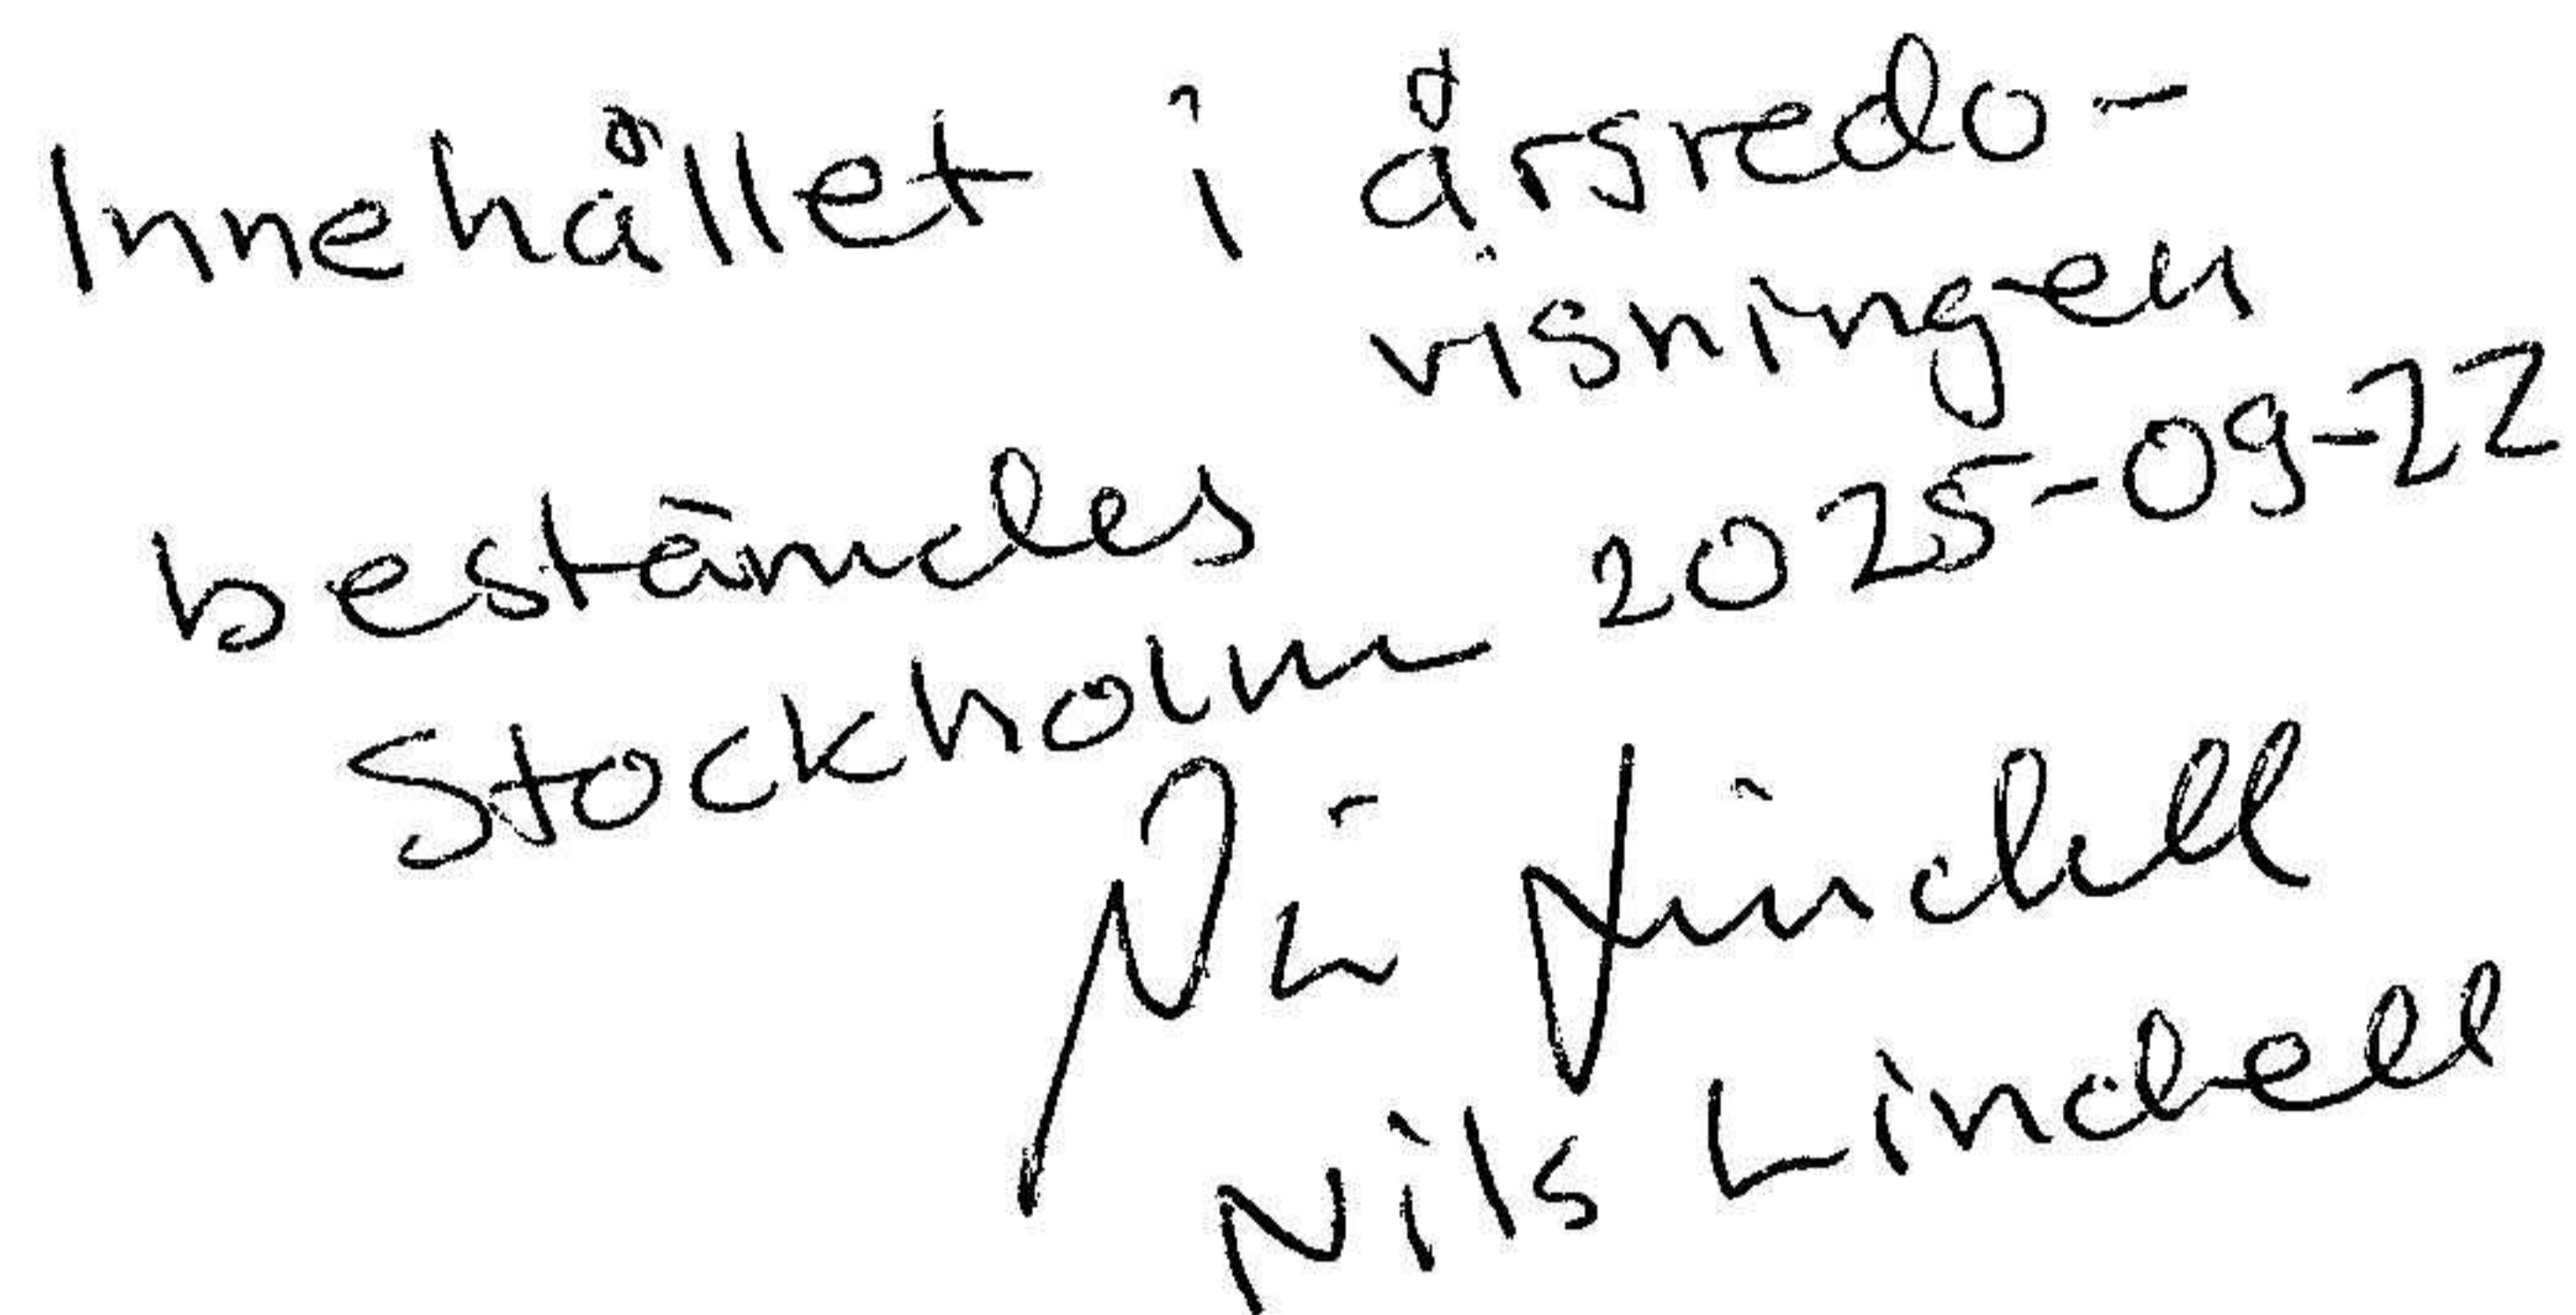 Innehållet i årsredo-
visningen
bestämdes
Stockholm 2025-09-22
Nils Lindell
Nils Lindell